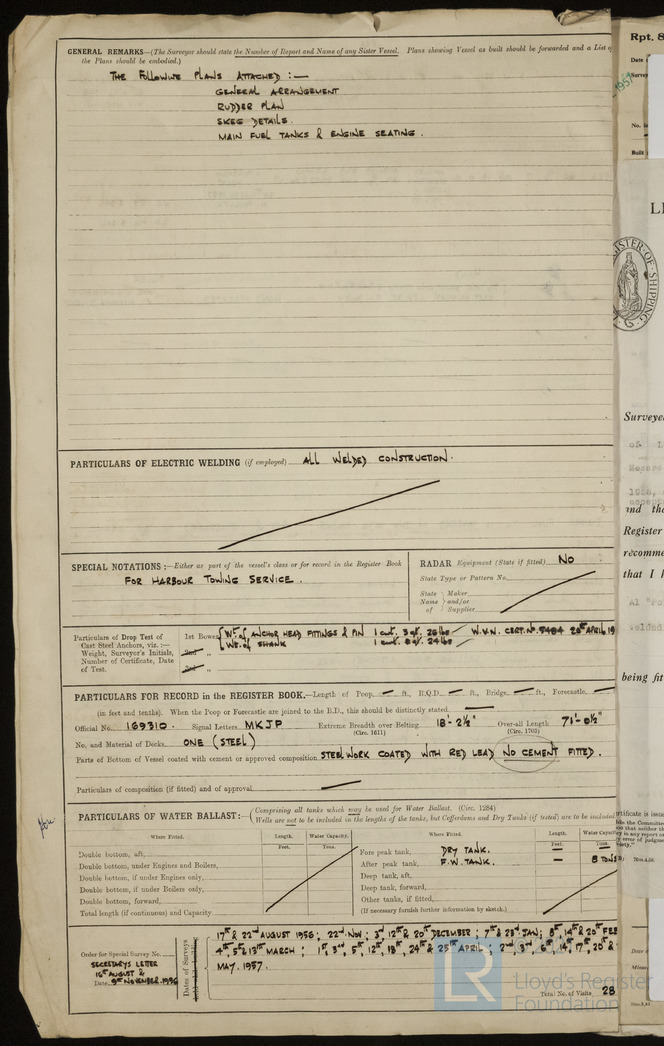 GENERAL REMARKS—(The Surveyor should state the Number of Report and Name of any Sister Vessel. Plans showing Vessel as built should be forwarded and a List of
the Plans should be embodied.)
THE FOLLOWING PLANS ATTACHED :—
GENERAL ARRANGEMENT
RUDDER PLAN
SKEG DETAILS.
MAIN FUEL TANKS & ENGINE SEATING.
PARTICULARS OF ELECTRIC WELDING (if employed) ALL WELDED CONSTRUCTION.
SPECIAL NOTATIONS :—Either as part of the vessel's class or for record in the Register Book
FOR HARBOUR TOWING SERVICE.
RADAR Equipment (State if fitted) NO
State Type or Pattern No.
State Maker
Name and/or
of Supplier
Particulars of Drop Test of
Cast Steel Anchors, viz. :—
Weight, Surveyor's Initials,
Number of Certificate, Date
of Test.
1st Bower WT. of ANCHOR HEAD FITTINGS & PIN 1 cwt. 3 qr. 26 lbs W.V.N. CERT. No. 5484 26th APRIL 19
WT. of SHANK 1 cwt. 24 lbs
2nd ,,
3rd ,,
PARTICULARS FOR RECORD in the REGISTER BOOK.—Length of Poop — ft., R.Q.D. — ft., Bridge — ft., Forecastle —
(in feet and tenths). When the Poop or Forecastle are joined to the B.D., this should be distinctly stated. —
Official No. 169310. Signal Letters MKJP Extreme Breadth over Belting 18'-2½" Over-all Length 71'-0½"
(Circ. 1611) (Circ. 1703)
No. and Material of Decks ONE (STEEL)
Parts of Bottom of Vessel coated with cement or approved composition STEELWORK COATED WITH RED LEAD NO CEMENT FITTED.
Particulars of composition (if fitted) and of approval —
PARTICULARS OF WATER BALLAST :— (Comprising all tanks which may be used for Water Ballast. (Circ. 1284)
Wells are not to be included in the lengths of the tanks, but Cofferdams and Dry Tanks (if tested) are to be included
Where Fitted. Length. Water Capacity. Where Fitted. Length. Water Capacity
Feet. Tons. Feet. Tons.
Double bottom, aft, Fore peak tank, DRY TANK. —
Double bottom, under Engines and Boilers, After peak tank, F.W. TANK. — 8 TONS
Double bottom, if under Engines only, Deep tank, aft,
Double bottom, if under Boilers only, Deep tank, forward,
Double bottom, forward, Other tanks, if fitted,
Total length (if continuous) and Capacity (If necessary furnish further information by sketch.)
Order for Special Survey No.
SECRETARYS LETTER
16th AUGUST &
Date 9th NOVEMBER. 1956
Dates of Surveys
17th & 22nd AUGUST 1956; 22nd NOV; 3rd 12th & 20th DECEMBER; 7th & 23rd JAN; 8th 14th & 20th FEB
4th, 5th & 13th MARCH; 1st, 3rd, 5th, 12th, 18th, 24th & 25th APRIL; 2nd, 3rd, 6th, 14th, 17th, 20th &
MAY. 1957.
Total No. of Visits 28
Lloyd's Register
Foundation
Rpt. 8
Date
Survey
1957
No.
Built
LL
STER·OF·SHIPPING
Surveye
and the
Register
recomme
that I h
being fit